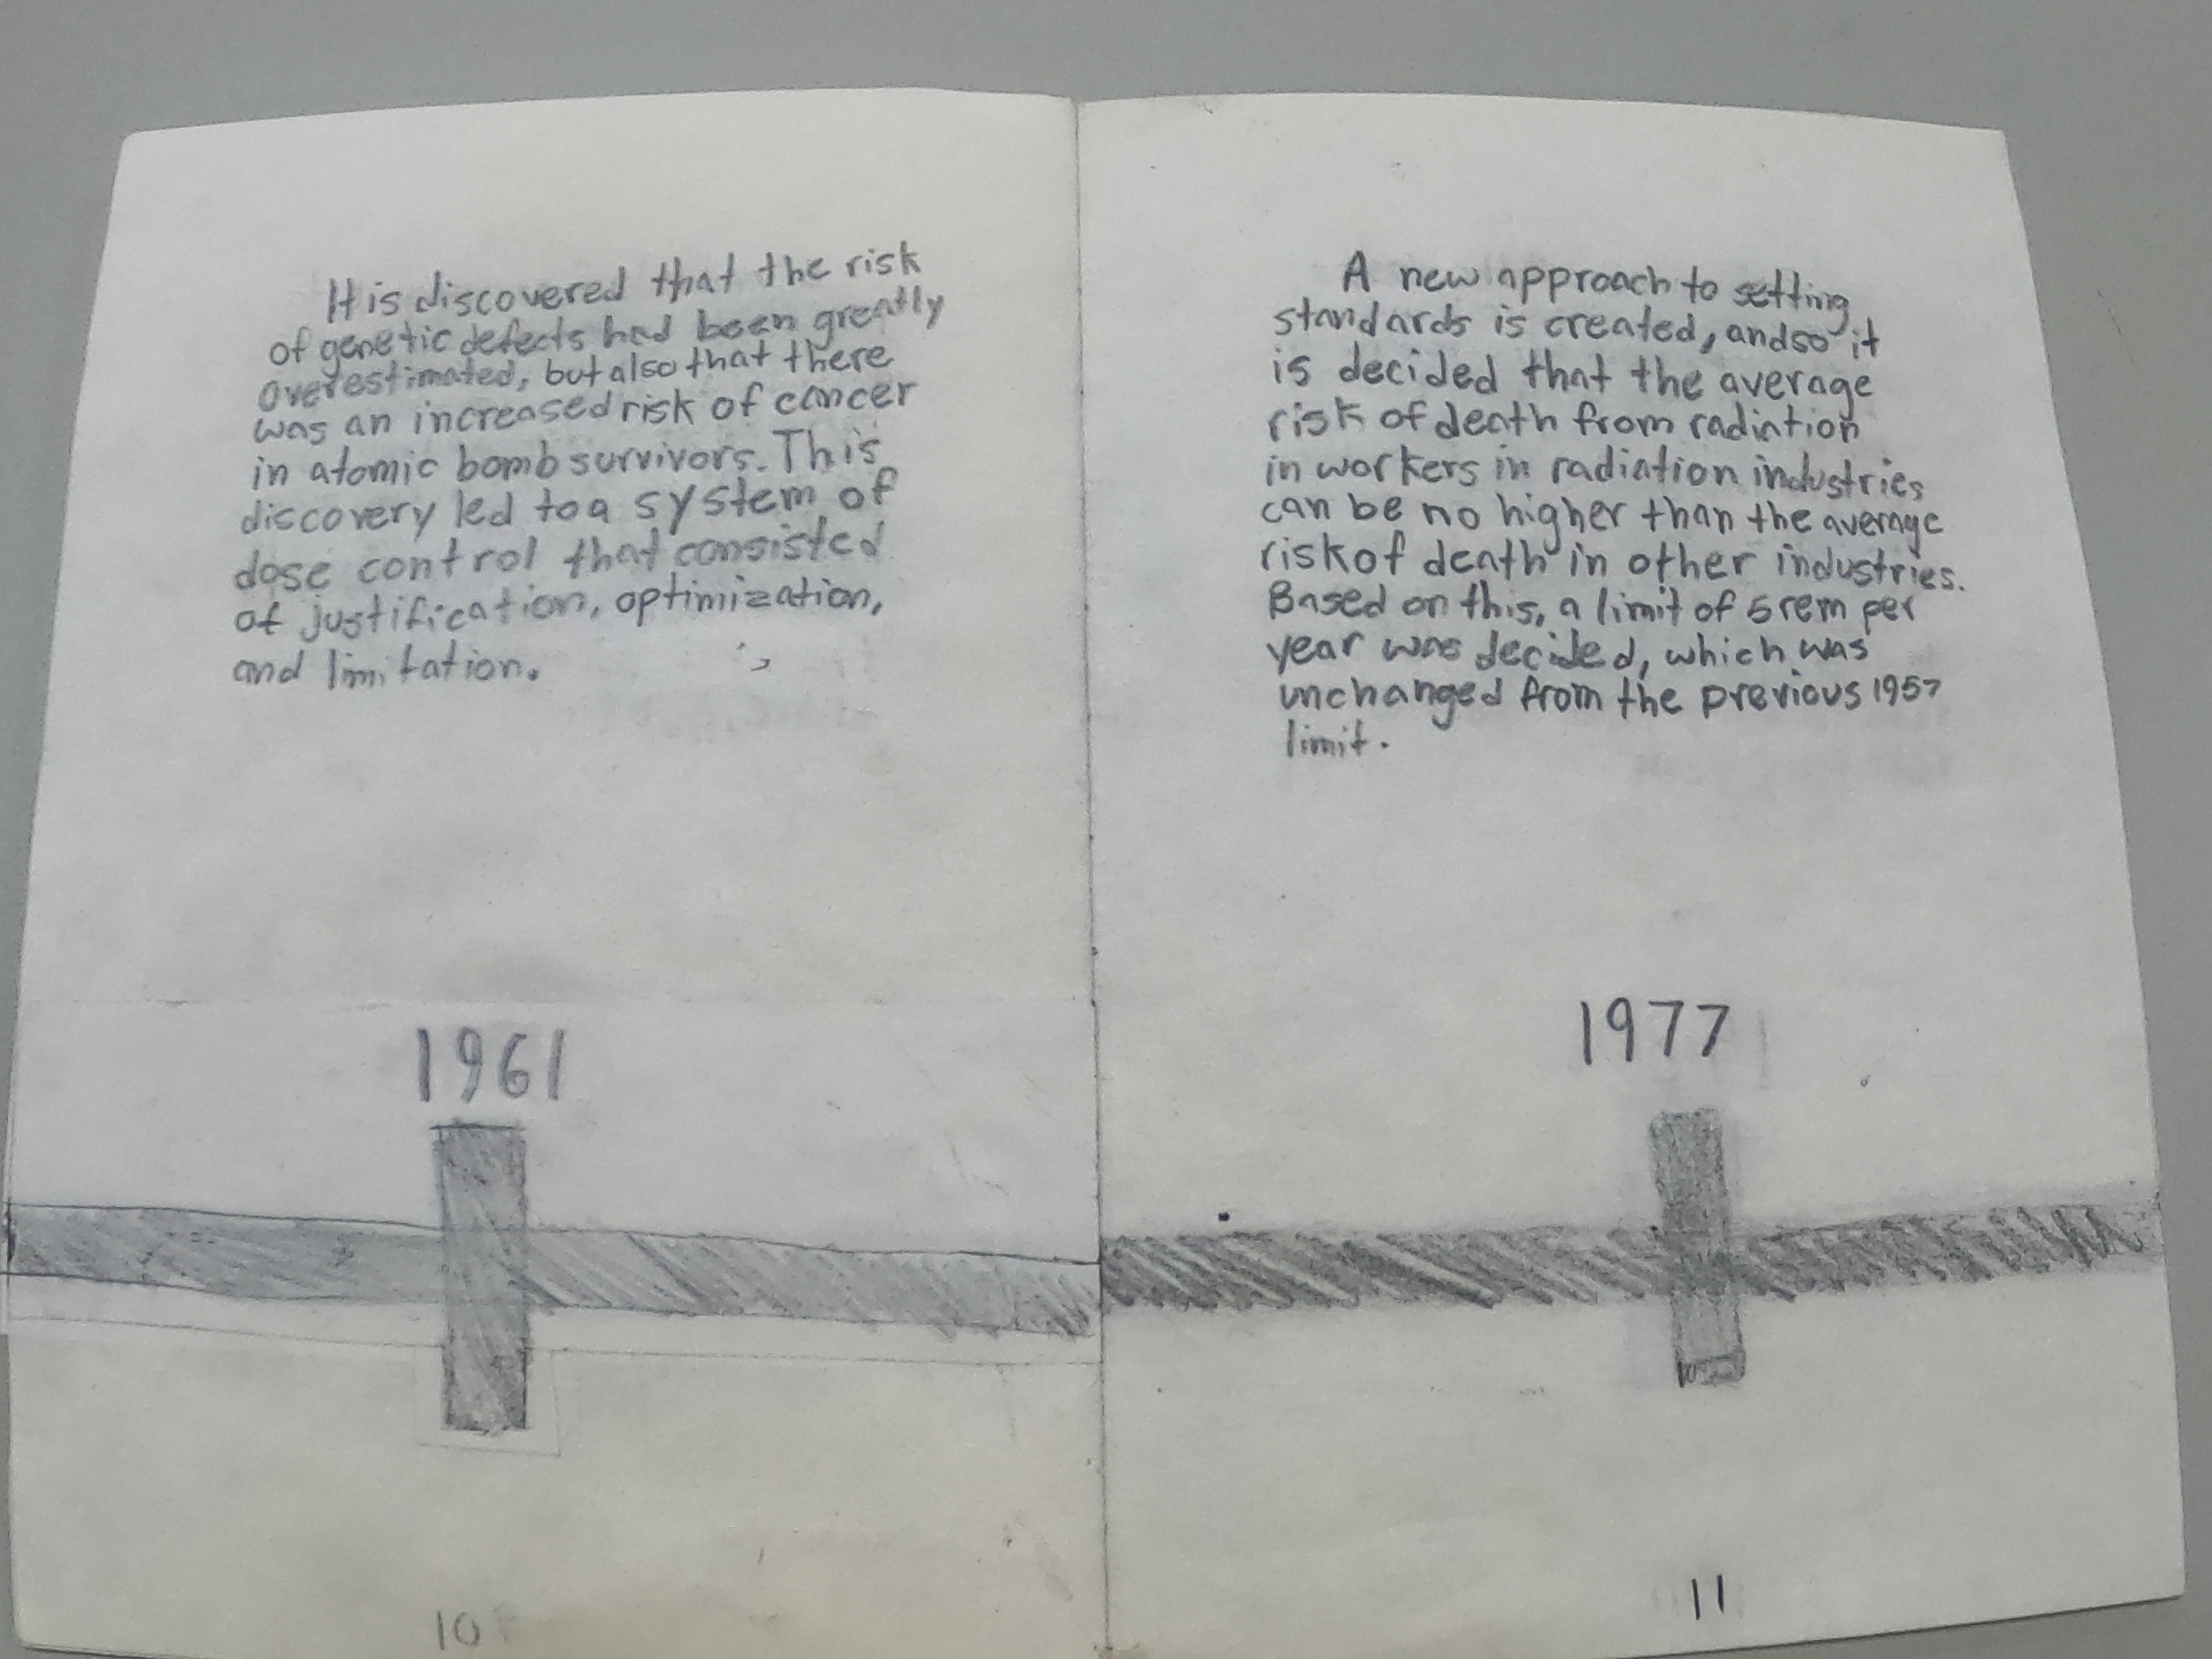 It is discovered that the risk
of genetic defects had been greatly
overestimated, but also that there
was an increased risk of cancer
in atomic bomb survivors. This
discovery led to a system of
dose control that consisted
of justification, optimization,
and limitation.
1961
10
A new approach to setting
standards is created, and so it
is decided that the average
risk of death from radiation
in workers in radiation industries
can be no higher than the average
risk of death in other industries.
Based on this, a limit of 5 rem per
year was decided, which was
unchanged from the previous 1957
limit.
1977
11